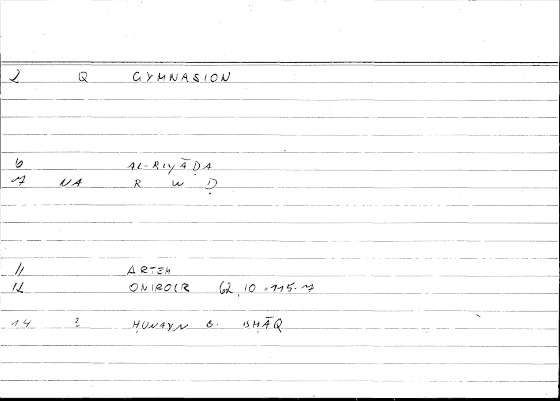 2 Q GYMNASION
6 AL-RIYĀḌA
7 NA R W Ḍ
11 ARTEM
12 ONIROCR 62,10 = 115.7
14 2 ḤUNAYN B. ISḤĀQ